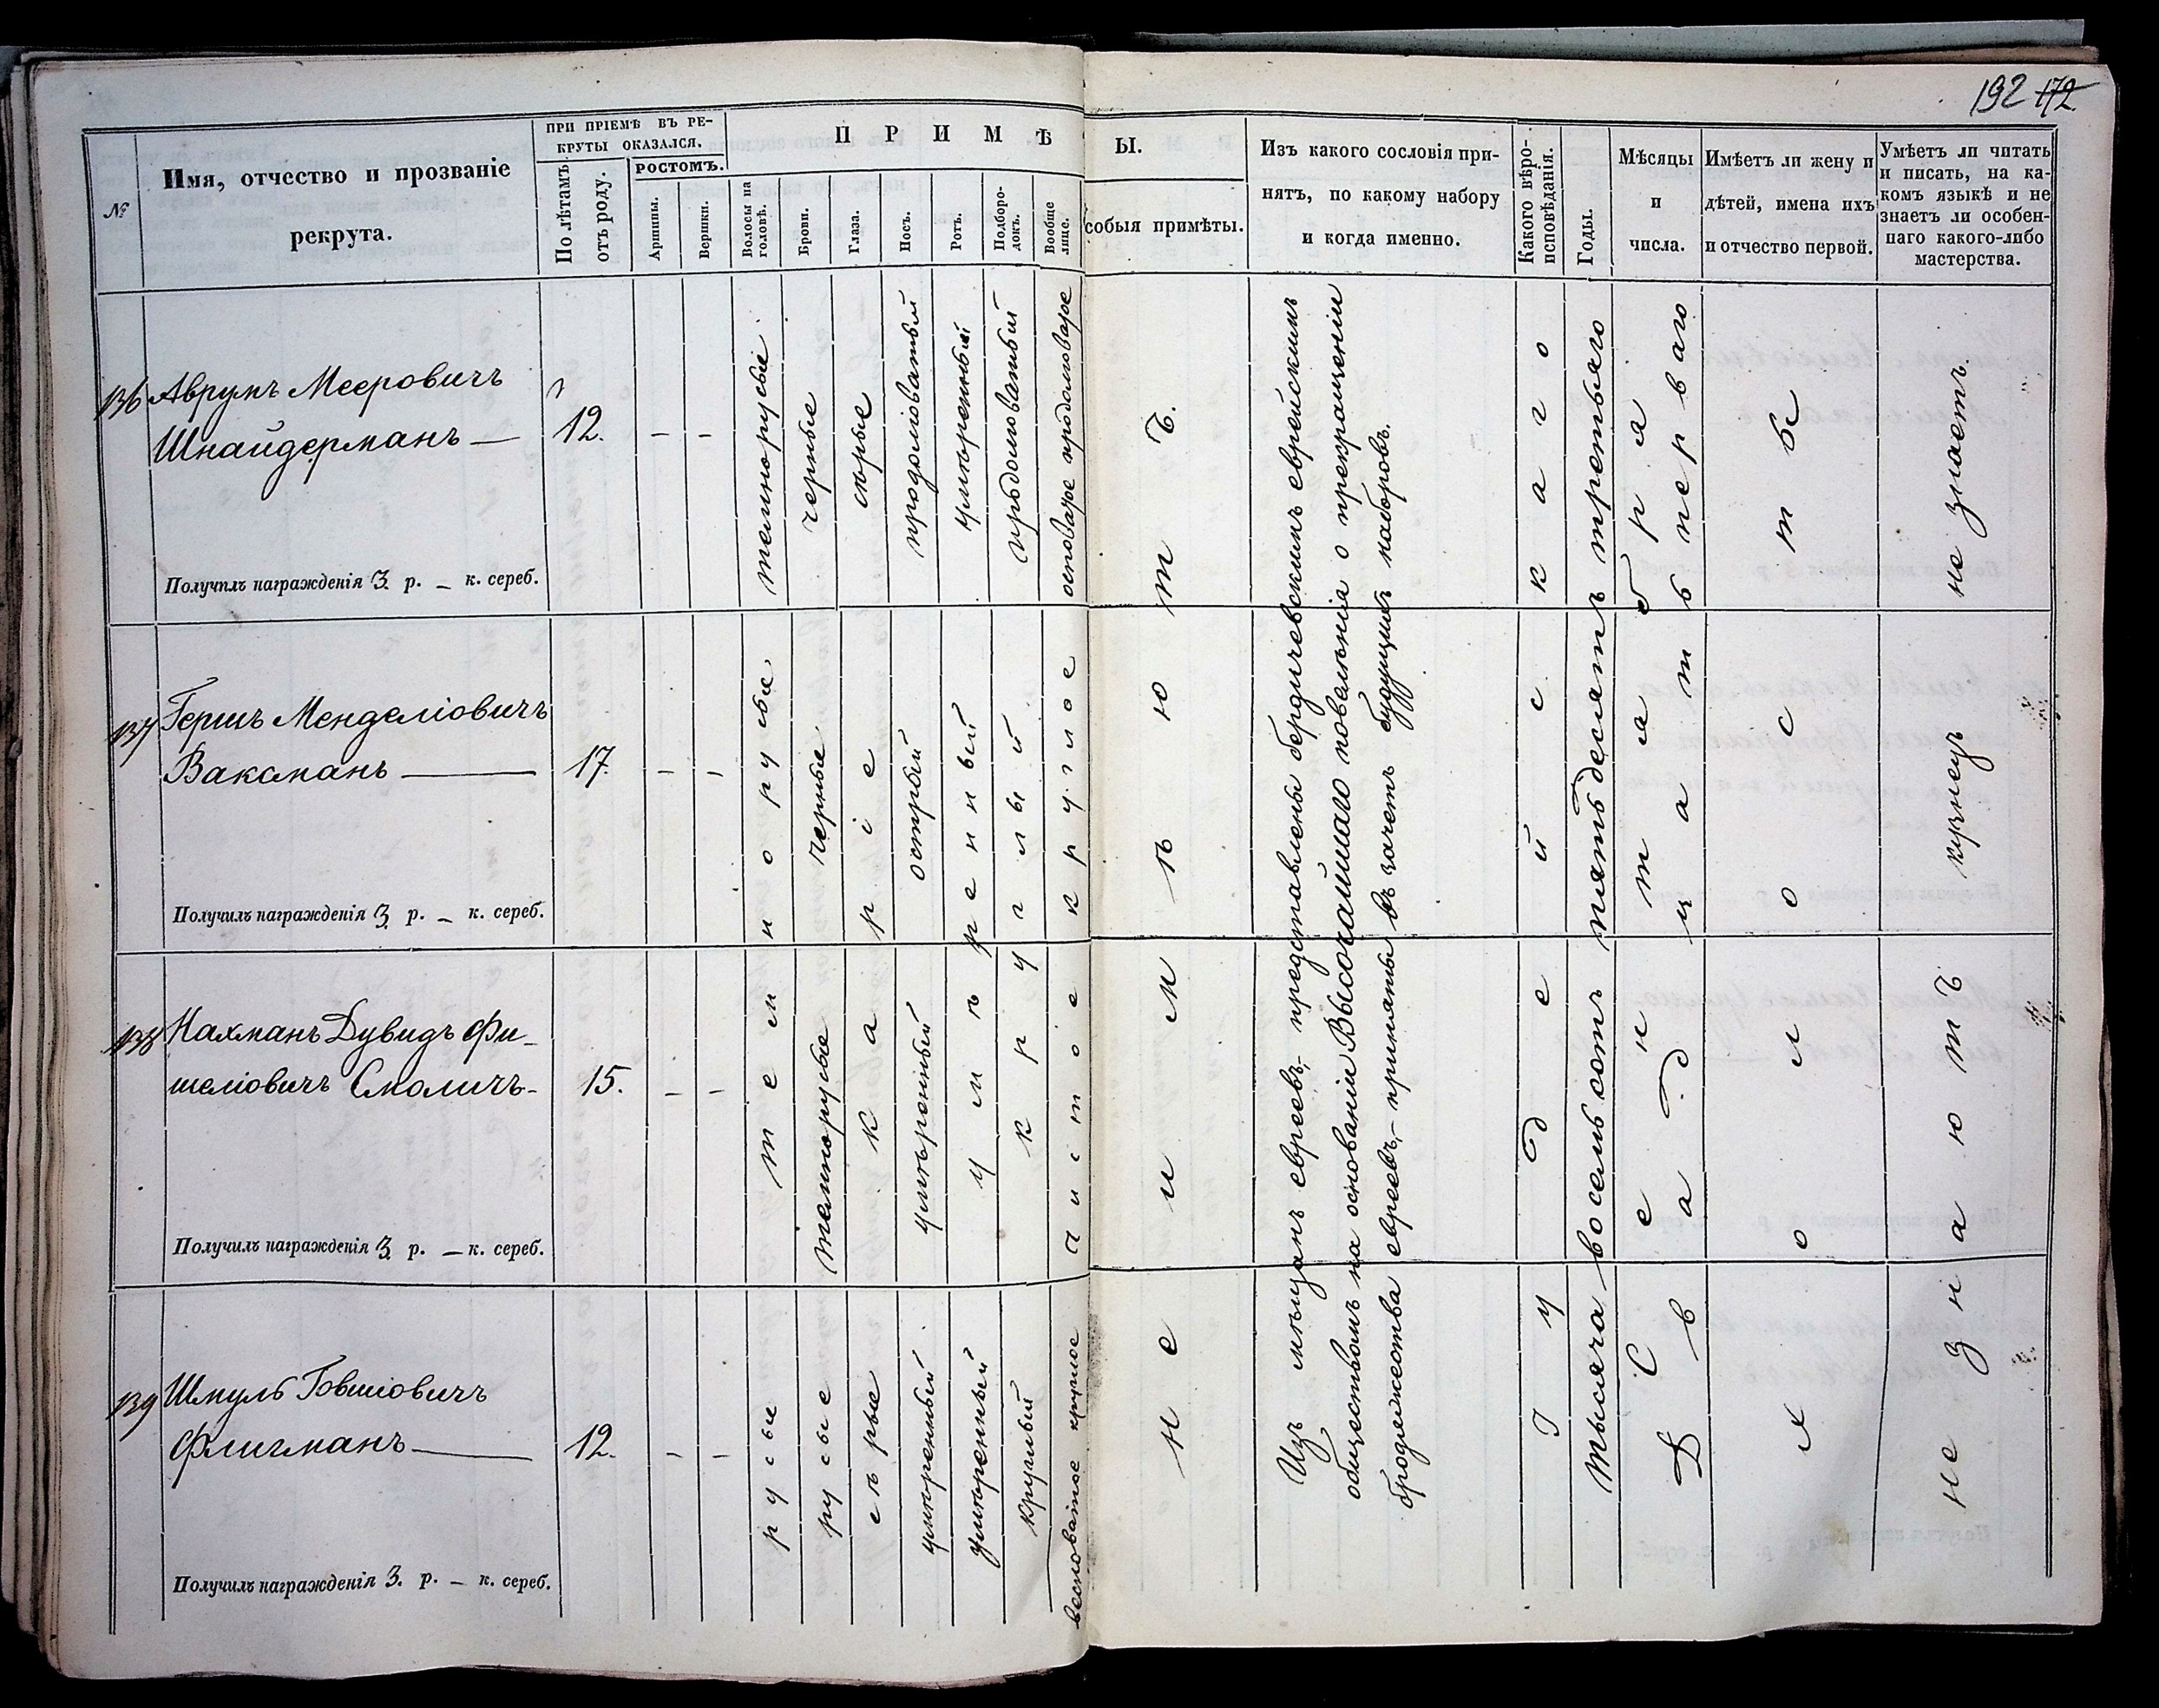 192 172.
№
Имя, отчество и прозваніе
рекрута.
ПРИ ПРІЕМѢ ВЪ РЕ-
КРУТЫ ОКАЗАЛСЯ.
По лѣтамъ
отъ роду.
РОСТОМЪ.
Аршины.
Вершки.
ПРИМѢ
Волосы на
головѣ.
Брови.
Глаза.
Носъ.
Ротъ.
Подборо-
докъ.
Вообще
лице.
Ы.
собыя примѣты.
Изъ какого сословія при-
нятъ, по какому набору
и когда именно.
Какого вѣро-
исповѣданія.
Годы.
Мѣсяцы
и
числа.
Имѣетъ ли жену и
дѣтей, имена ихъ
и отчество первой.
Умѣетъ ли читать
и писать, на ка-
комъ языкѣ и не
знаетъ ли особен-
наго какого-либо
мастерства.
136
Аврумъ Мееровичъ
Шнайдерманъ —
12.
– –
темнорусые
черные
сѣрые
продолговатый
умѣренный
продолговатый
осповатое продолговатое
не знаетъ
Получилъ награжденія 3 р. – к. сереб.
137
Гершъ Менделіовичъ
Ваксманъ —
17.
– –
темнорусые
черные
каріе
острый
умѣренный
круглый
чистое круглое
кузнецъ
Получилъ награжденія 3 р. – к. сереб.
138
Нахманъ Дувидъ Фи-
шеліовичъ Смоличъ -
15.
– –
темнорусые
умѣренный
Получилъ награжденія 3 р. – к. сереб.
139
Шмуль Говшіовичъ
Флигманъ —
12.
– –
русые
русые
сѣрые
умѣренный
умѣренный
круглый
весноватое круглое
Получилъ награжденія 3. р. – к. сереб.
не имѣютъ.
Изъ мѣщанъ евреевъ, представлены бердичевскимъ еврейскимъ
обществомъ на основаніи Высочайшаго повелѣнія о прекращеніи
бродяжества евреевъ, – приняты въ зачетъ будущихъ наборовъ.
Іудейскаго
тысяча восемьсотъ пятьдесятъ третьяго
Сентября
двадцать перваго
холосты
не знаютъ